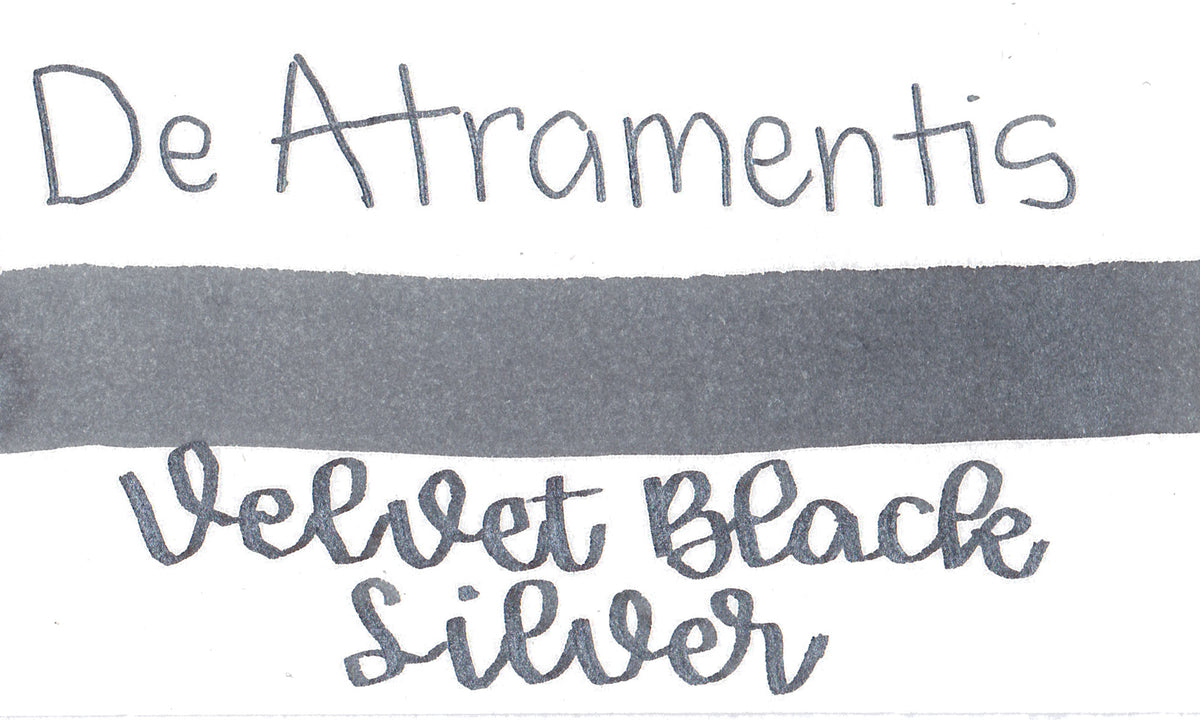 De Atramentis
Velvet Black
Silver